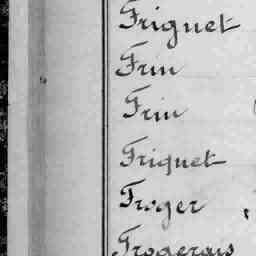 Friguet
Frin
Frin
Friquet
Froger
Frogerais